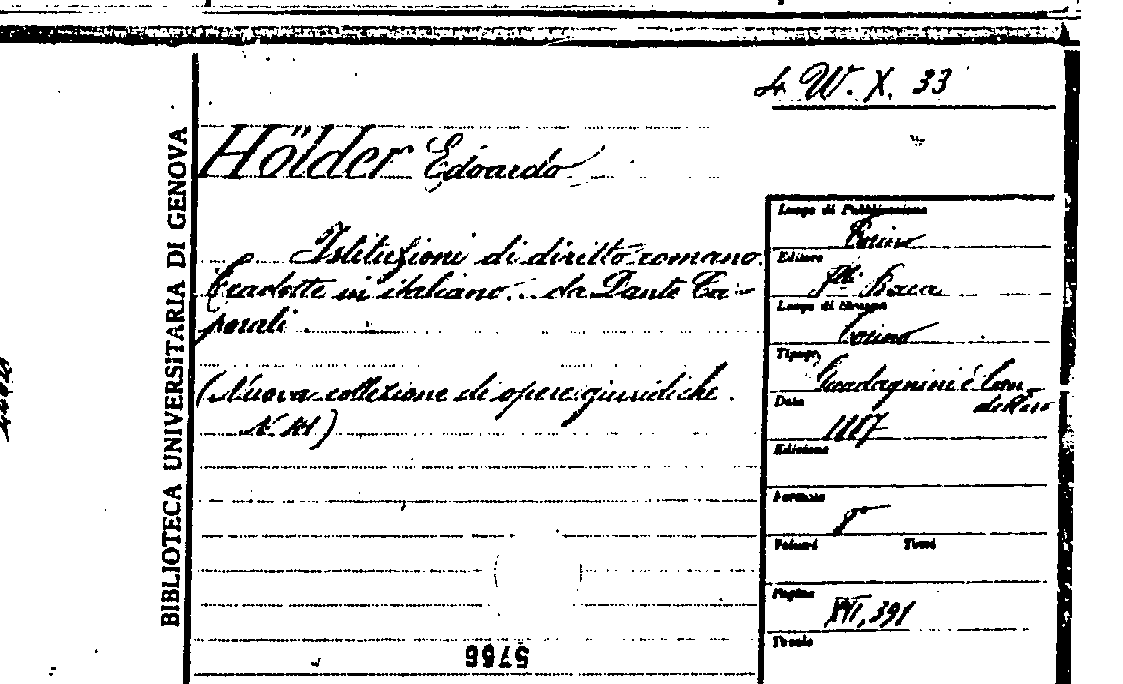 4. W. X. 33
BIBLIOTECA UNIVERSITARIA DI GENOVA
Hölder Edoardo
Istituzioni di diritto romano.
Tradotte in italiano... da Dante Ca-
porali.
(Nuova collezione di opere giuridiche.
N.
Luogo di Pubblicazione
Torino
Editore
F.lli Bocca
Luogo di Stampa
Torino
Tipogr.
Guadagnini e Can-
dellero
Data
1887
Edizione
Formato
8°
Volumi Tomi
Pagine
XVI, 391
Tavole
5766